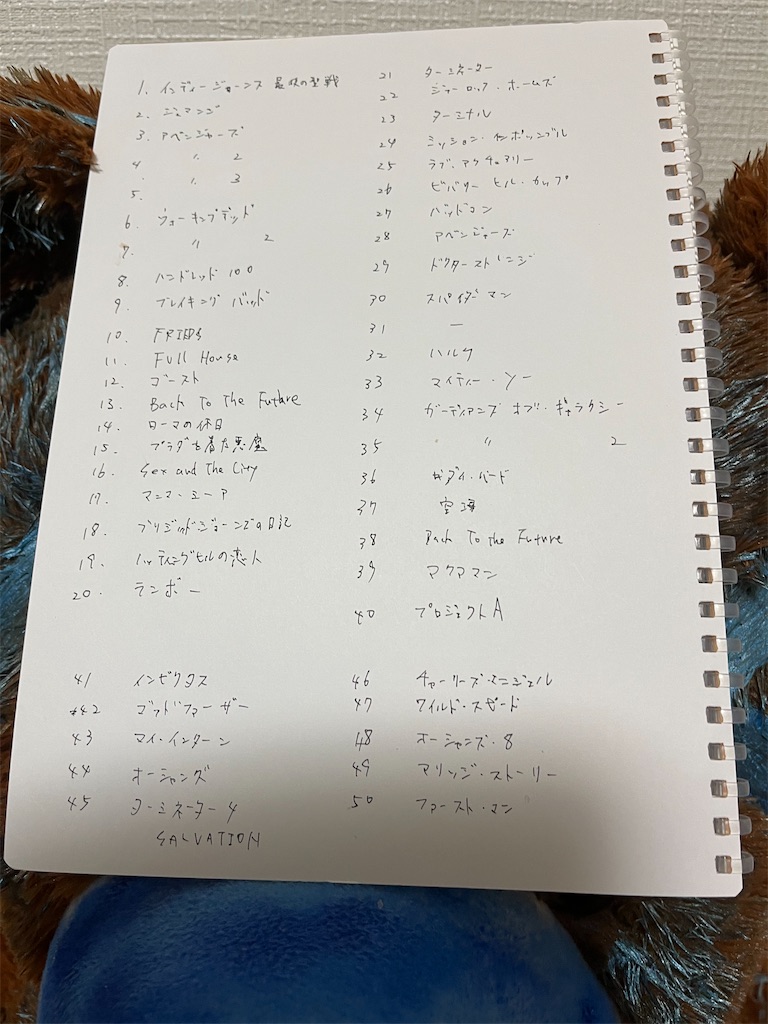 1. インディージョーンズ 最後の聖戦
2. ジュマンジ
3. アベンジャーズ
4 〃 2
5. 〃 3
6. ウォーキングデッド
7. 〃 2
8. ハンドレッド 100
9. ブレイキング バッド
10. FRIDS
11. Full House
12. ゴースト
13. Back To The Future
14. ローマの休日
15. プラダを着た悪魔
16. Sex and The City
17. マンマ・ミーア
18. ブリジットジョーンズの日記
19. ノッティングヒルの恋人
20. ランボー
21 ターミネーター
22 シャーロック・ホームズ
23 ターミナル
24 ミッション・インポッシブル
25 ラブ・アクチュアリー
26 ビバリー ヒル・カップ
27 バッドマン
28 アベンジャーズ
29 ドクターストレンジ
30 スパイダーマン
31 ー
32 ハルク
33 マイティー・ソー
34 ガーディアンズ オブ・ギャラクシー
35 〃 2
36 バード
37 空海
38 Back To The Future
39 アクアマン
40 プロジェクトA
41 インビクタス
42 ゴッドファーザー
43 マイ・インターン
44 オーシャンズ
45 ターミネーター4
SALVATION
46 チャーリーズ・エンジェル
47 ワイルド・スピード
48 オーシャンズ・8
49 マリッジ・ストーリー
50 ファースト・マン